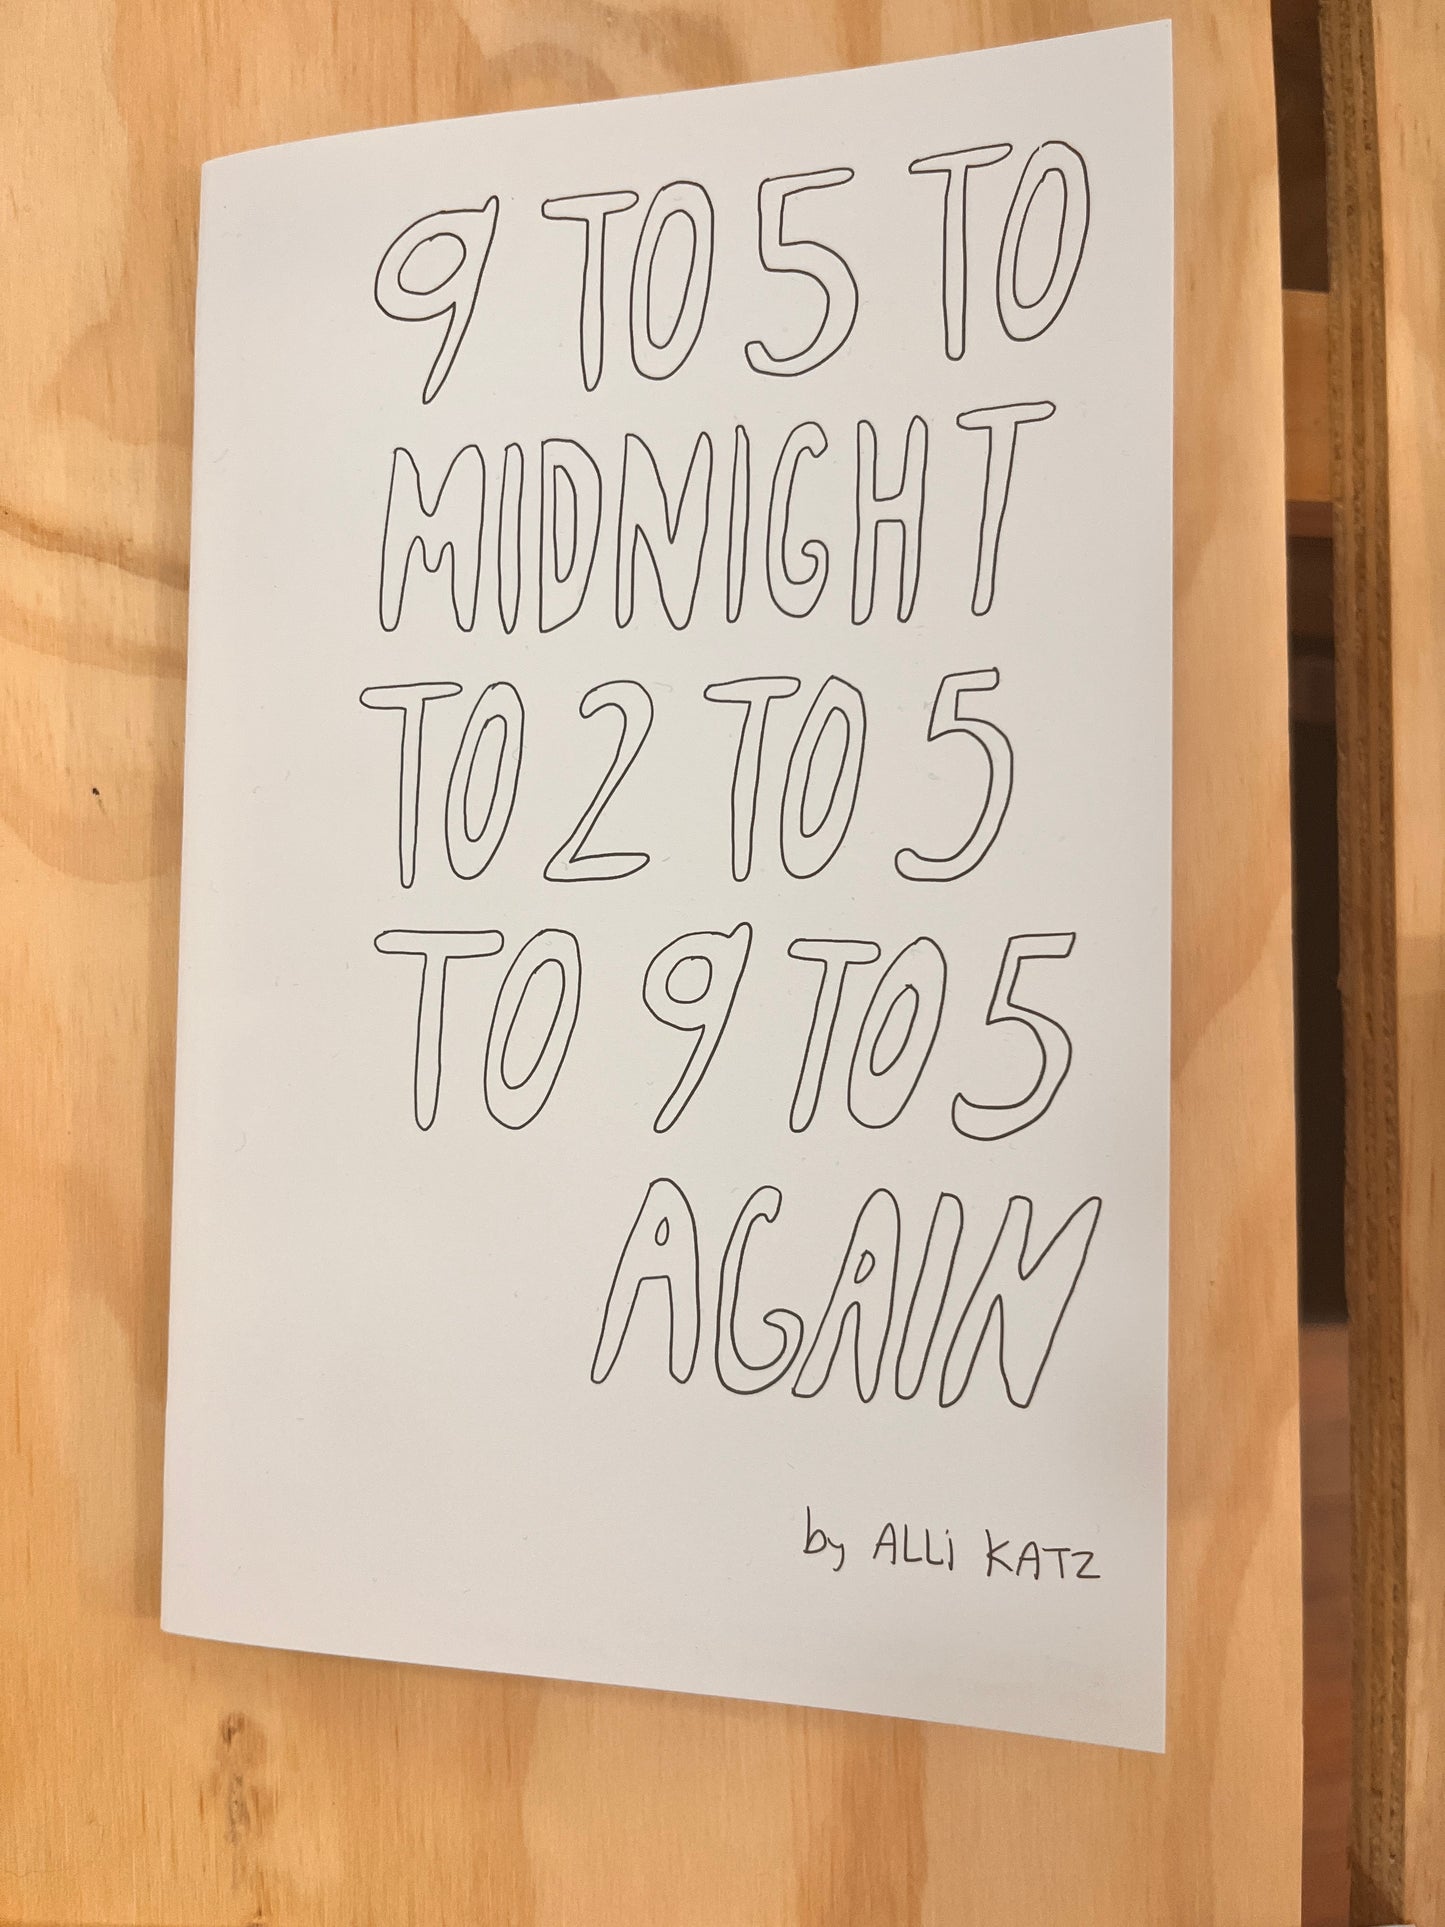 9 TO 5 TO
MIDNIGHT
TO 2 TO 5
TO 9 TO 5
AGAIN
by ALLi KATZ